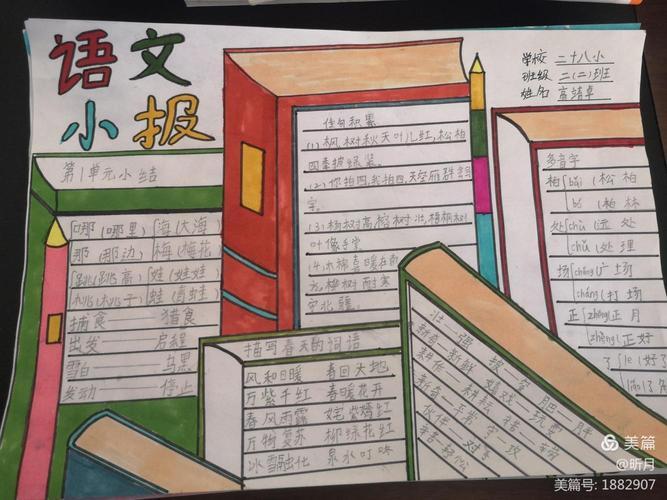 语文
小报
学校 二十八小
班级 二(二)班
姓名 高靖卓
第1单元小结
哪(哪里) 海(大海)
那(那边) 梅(梅花)
跳(跳高) 娃(娃娃)
桃(桃子) 蛙(青蛙)
捕食 猎食
出发 启程
雪白 乌黑
发动 停止
佳句积累
(1)枫树秋天叶儿红,松柏
四季披绿装。
(2)你拍四,我拍四,天空雁群会写
字。
(3)杨树高,榕树壮,梧桐树
叶像手掌
(4)木棉喜暖在南
方,桦树耐寒
守北疆。
描写春天的词语
风和日暖 春回大地
万紫千红 春暖花开
春风雨露 姹紫嫣红
万物复苏 柳绿花红
冰雪融化 泉水叮咚
壮—强
新奇 新鲜
耕伍 嬉戏
耕耘 玩耍
伙伴
辛苦—轻松
多音字
柏 bǎi 松柏
bó 柏林
处 chù 远处
chǔ 处理
场 chǎng 广场
cháng 打场
正 zhēng 正月
zhèng 正好
了 le 好了
liǎo
美篇
@昕月
美篇号: 1882907